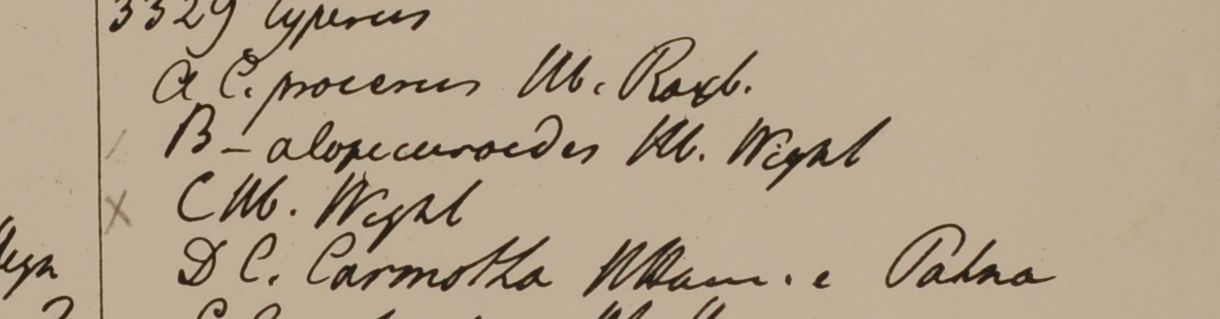 3329 Cyperus
a C. procerus Hb. Roxb.
B – alopecuroides Hb. Wight
C Hb. Wight
D C. Carmotha HHam. e Patna